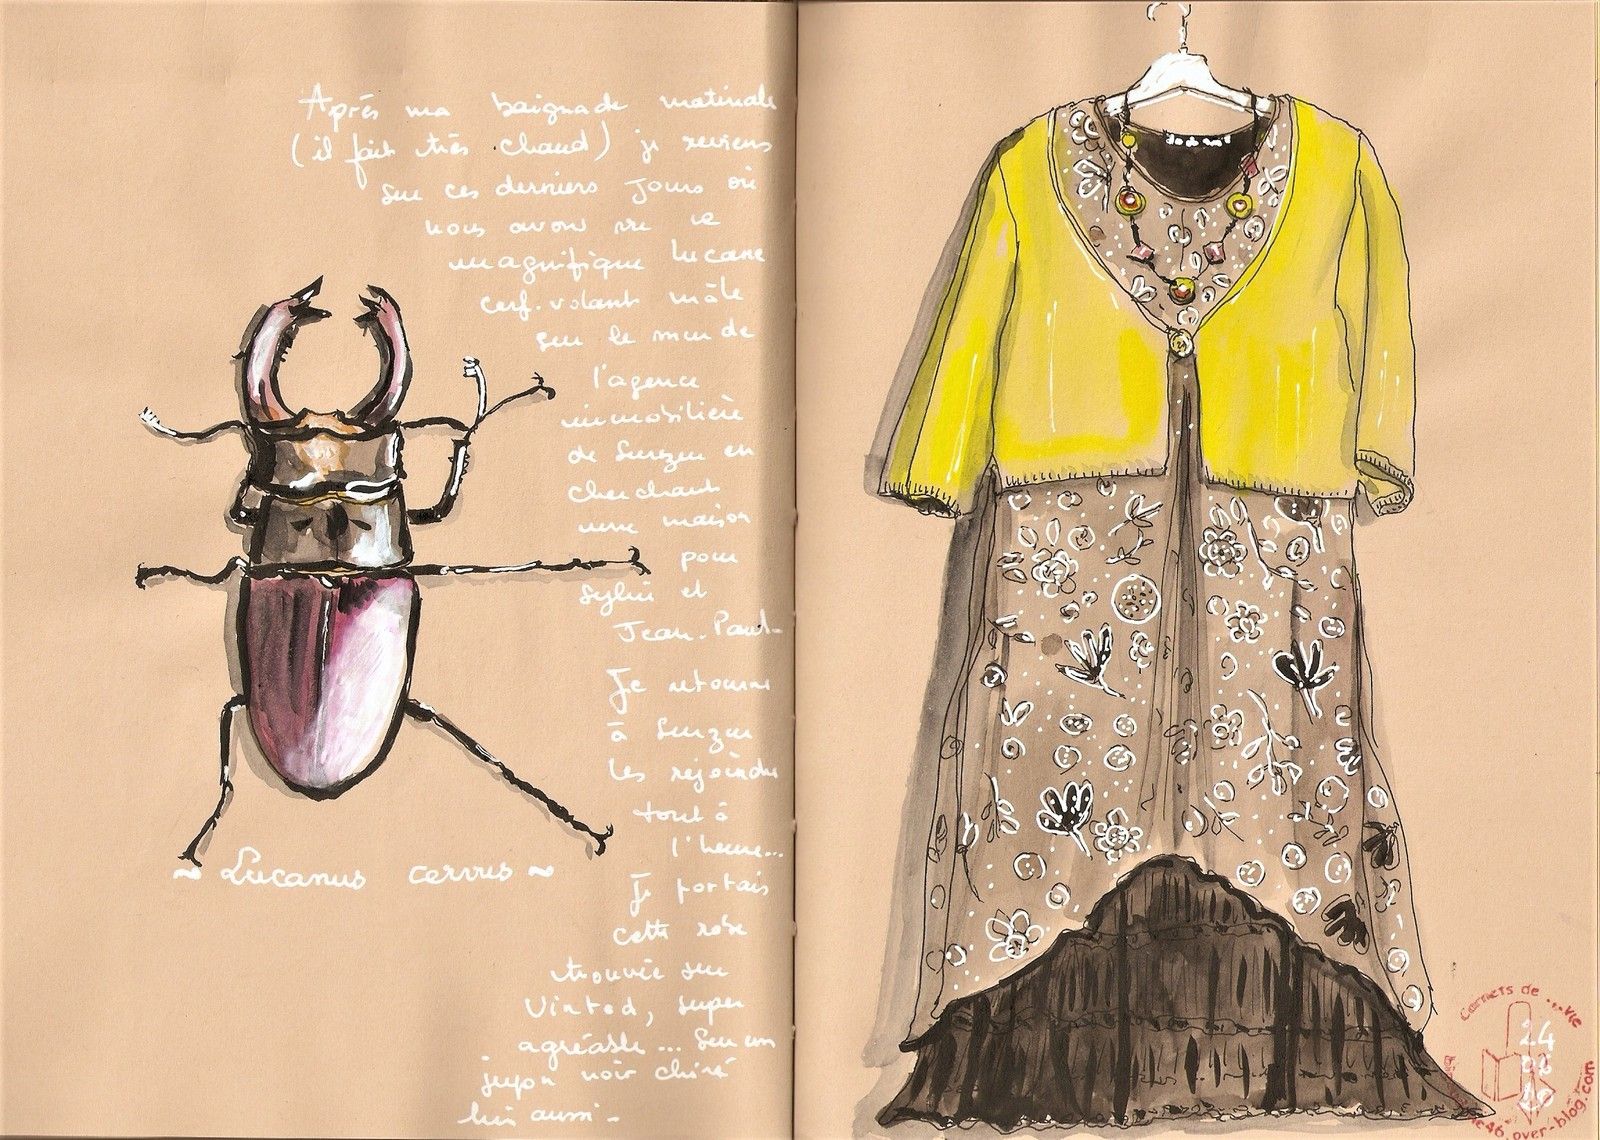 Après ma baignade matinale
(il fait très chaud) je reviens
sur ces derniers jours où
nous avons vu ce
magnifique lucane
cerf-volant mâle
sur le mur de
l'agence
immobilière
de Surzur en
cherchant
une maison
pour
Sylvie et
Jean-Paul-
Je retourne
à Surzur
les rejoindre
tout à
l'heure...
Je portais
cette robe
trouvée sur
Vinted, super
agréable... Sur un
jupon noir chiné
lui aussi-
~ Lucanus cervus ~
Carnets de ...vie
24
46.over-blog.com